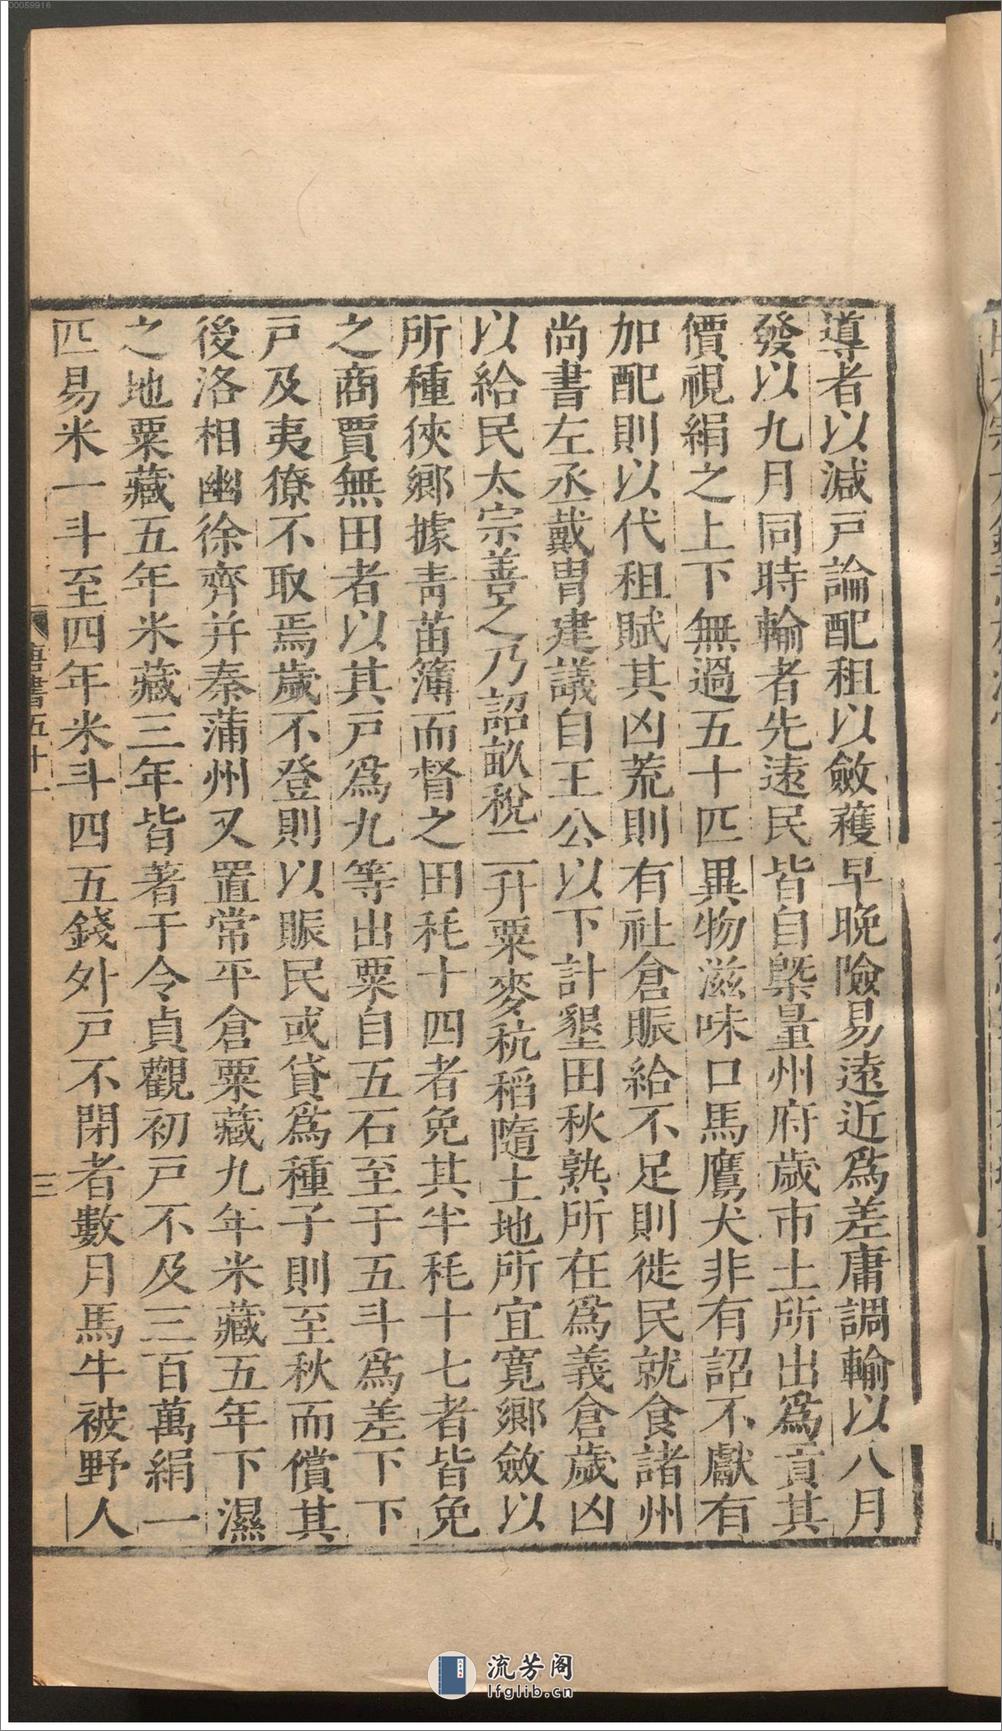 導者以減戸論配租以斂穫早晚險易遠近爲差庸調輸以八月
發以九月同時輸者先遠民皆自槩量州府歲市土所出爲貢其
價視絹之上下無過五十匹異物滋味口馬鷹犬非有詔不獻有
加配則以代租賦其凶荒則有社倉賑給不足則徙民就食諸州
尚書左丞戴冑建議自王公以下計墾田秋熟所在爲義倉歲凶
以給民太宗善之乃詔畝稅二升粟麥秔稻隨土地所宜寛鄉斂以
所種狹鄉據青苗簿而督之田耗十四者免其半耗十七者皆免
之商賈無田者以其戸爲九等出粟自五石至于五斗爲差下下
戸及夷獠不取焉歲不登則以賑民或貸爲種子則至秋而償其
後洛相幽徐齊并秦蒲州又置常平倉粟藏九年米藏五年下濕
之地粟藏五年米藏三年皆著于令貞觀初戸不及三百萬絹一
匹易米一斗至四年米斗四五錢外戸不閉者數月馬牛被野人
唐書五十一
三
流芳阁
lfglib.cn
00059916